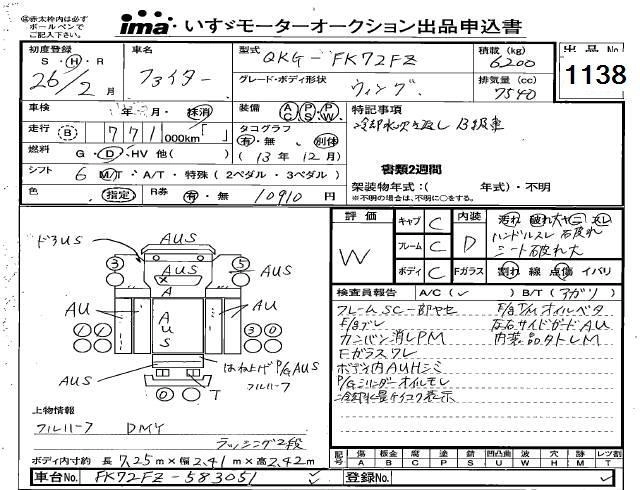 赤太枠内は必ず
ボールペンで
ご記入下さい。
ima いすゞモーターオークション出品申込書
初度登録 S・H・R 26/2月
車名 ファイター
型式 QKG-FK72FZ
グレード・ボディ形状 ウィング
積載(kg) 6200
排気量(cc) 7540
出品No. 1138
車検 年 月・抹消
走行 B 771 000km
燃料 G・D・HV 他( )
シフト 6 M/T・A/T・特殊(2ペダル・3ペダル)
色 指定 R券 有・無 10910円
装備 AC PS PW
タコグラフ 有・無 別体
(13年12月)
特記事項
冷却水吹き返し B級車
書類2週間
架装物年式:( 年式)・不明
※不明の場合は、不明に○をする。
評価 W
キャブ C
フレーム C
ボディ C
内装 D
Fガラス
汚れ 破れ大
ハンドルスレ
シート破れ大
割れ 線 点傷 イバリ
検査員報告 A/C(✓) B/T(アガリ)
フレームSC一部ヤセ
カンバン消しPM
Fガラスワレ
ボディ内AUHシミ
P/Gシリンダーオイルモレ
冷却水量ケイコク表示
オイルベタ
左右サイドガードAU
内装品タトレM
ドラUS
AUS
AUS
A
3
5
AUS
AU
AU
AUS
11
30
AUS
はね上げP/G AUS
フルハーフ
T
0
上物情報
フルハーフ DMY
ラッシング2段
ボディ内寸約 長7.25m×幅2.41m×高2.42m
記号 傷A 板金B 腐C 塗P 錆S 凹凸曲U 波W 穴H 欠X 跡M レツ割T
車台No. FK72FZ-583051
登録No.